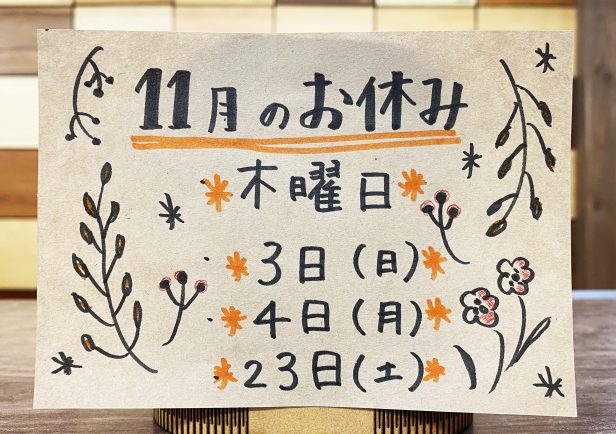 11月のお休み
木曜日
3日(日)
4日(月)
23日(土)